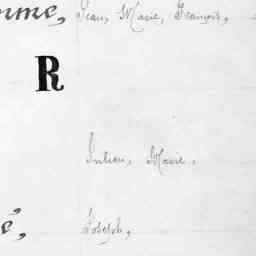 Jean, Marie, François,
R
Julien, Marie,
é, Joseph,